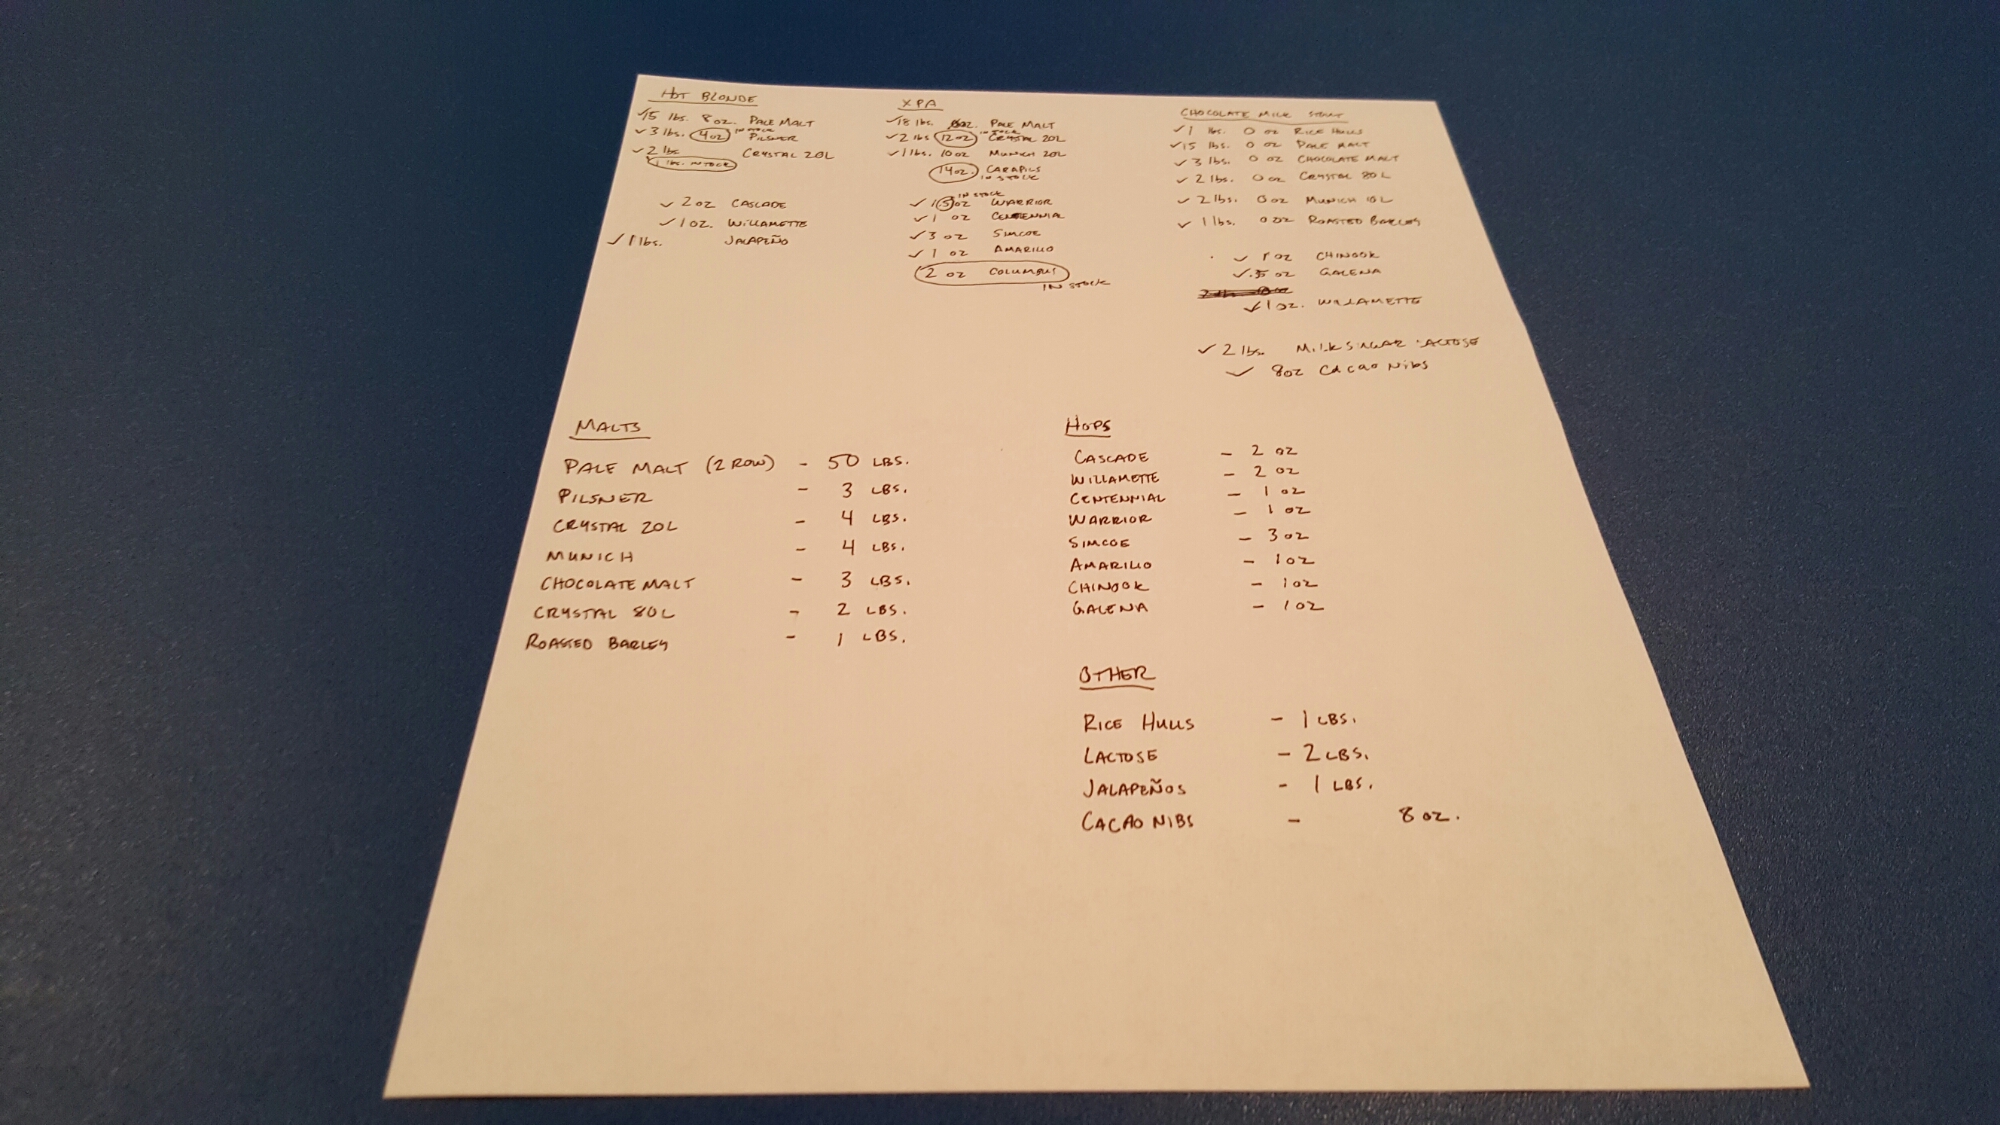 HOT BLONDE
15 lbs. 8 oz. PALE MALT
IN STOCK
3 lbs. 4oz PILSNER
2 lbs CRYSTAL 20L
1 lbs. IN STOCK
2 oz CASCADE
1 oz. WILLAMETTE
1 lbs. JALAPEÑO
XPA
18 lbs. oz. PALE MALT
IN STOCK
2 lbs 12oz CRYSTAL 20L
1 lbs. 10 oz MUNICH 20L
14oz. CARAPILS
IN STOCK
IN STOCK
1.5 oz WARRIOR
1 oz CENTENNIAL
3 oz SIMCOE
1 oz AMARILLO
2 oz COLUMBUS
IN STOCK
CHOCOLATE MILK STOUT
1 lbs. 0 oz RICE HULLS
15 lbs. 0 oz PALE MALT
3 lbs. 0 oz CHOCOLATE MALT
2 lbs. 0 oz CRYSTAL 80L
2 lbs. 0 oz MUNICH 10L
1 lbs. 0 oz ROASTED BARLEY
1 oz CHINOOK
.5 oz GALENA
1 oz. WILLAMETTE
2 lbs. MILK SUGAR LACTOSE
8oz CACAO NIBS
MALTS
PALE MALT (2 ROW) - 50 LBS.
PILSNER - 3 LBS.
CRYSTAL 20L - 4 LBS.
MUNICH - 4 LBS.
CHOCOLATE MALT - 3 LBS.
CRYSTAL 80L - 2 LBS.
ROASTED BARLEY - 1 LBS.
HOPS
CASCADE - 2 oz
WILLAMETTE - 2 oz
CENTENNIAL - 1 oz
WARRIOR - 1 oz
SIMCOE - 3 oz
AMARILLO - 1 oz
CHINOOK - 1 oz
GALENA - 1 oz
OTHER
RICE HULLS - 1 LBS.
LACTOSE - 2 LBS.
JALAPEÑOS - 1 LBS.
CACAO NIBS - 8 oz.